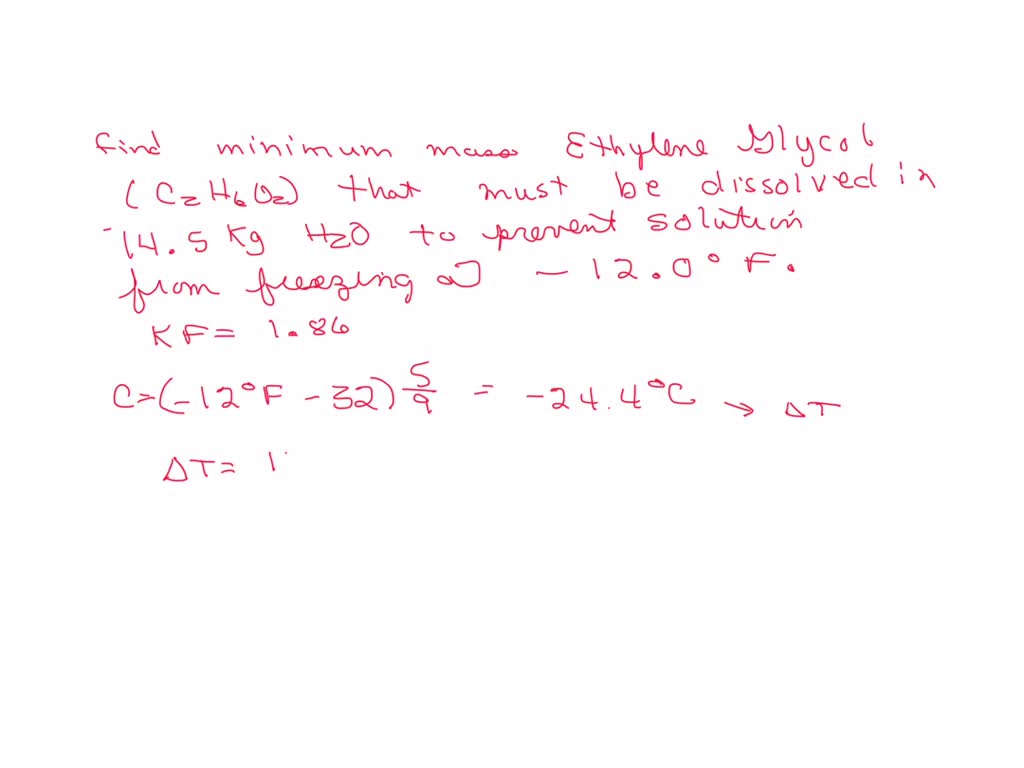 Find minimum mass Ethylene Glycol
(C2H6O2) that must be dissolved in
14.5 Kg H2O to prevent solution
from freezing at -12.0° F.
KF= 1.86
C=(-12°F - 32) 5/9 = -24.4°C → ΔT
ΔT= 1